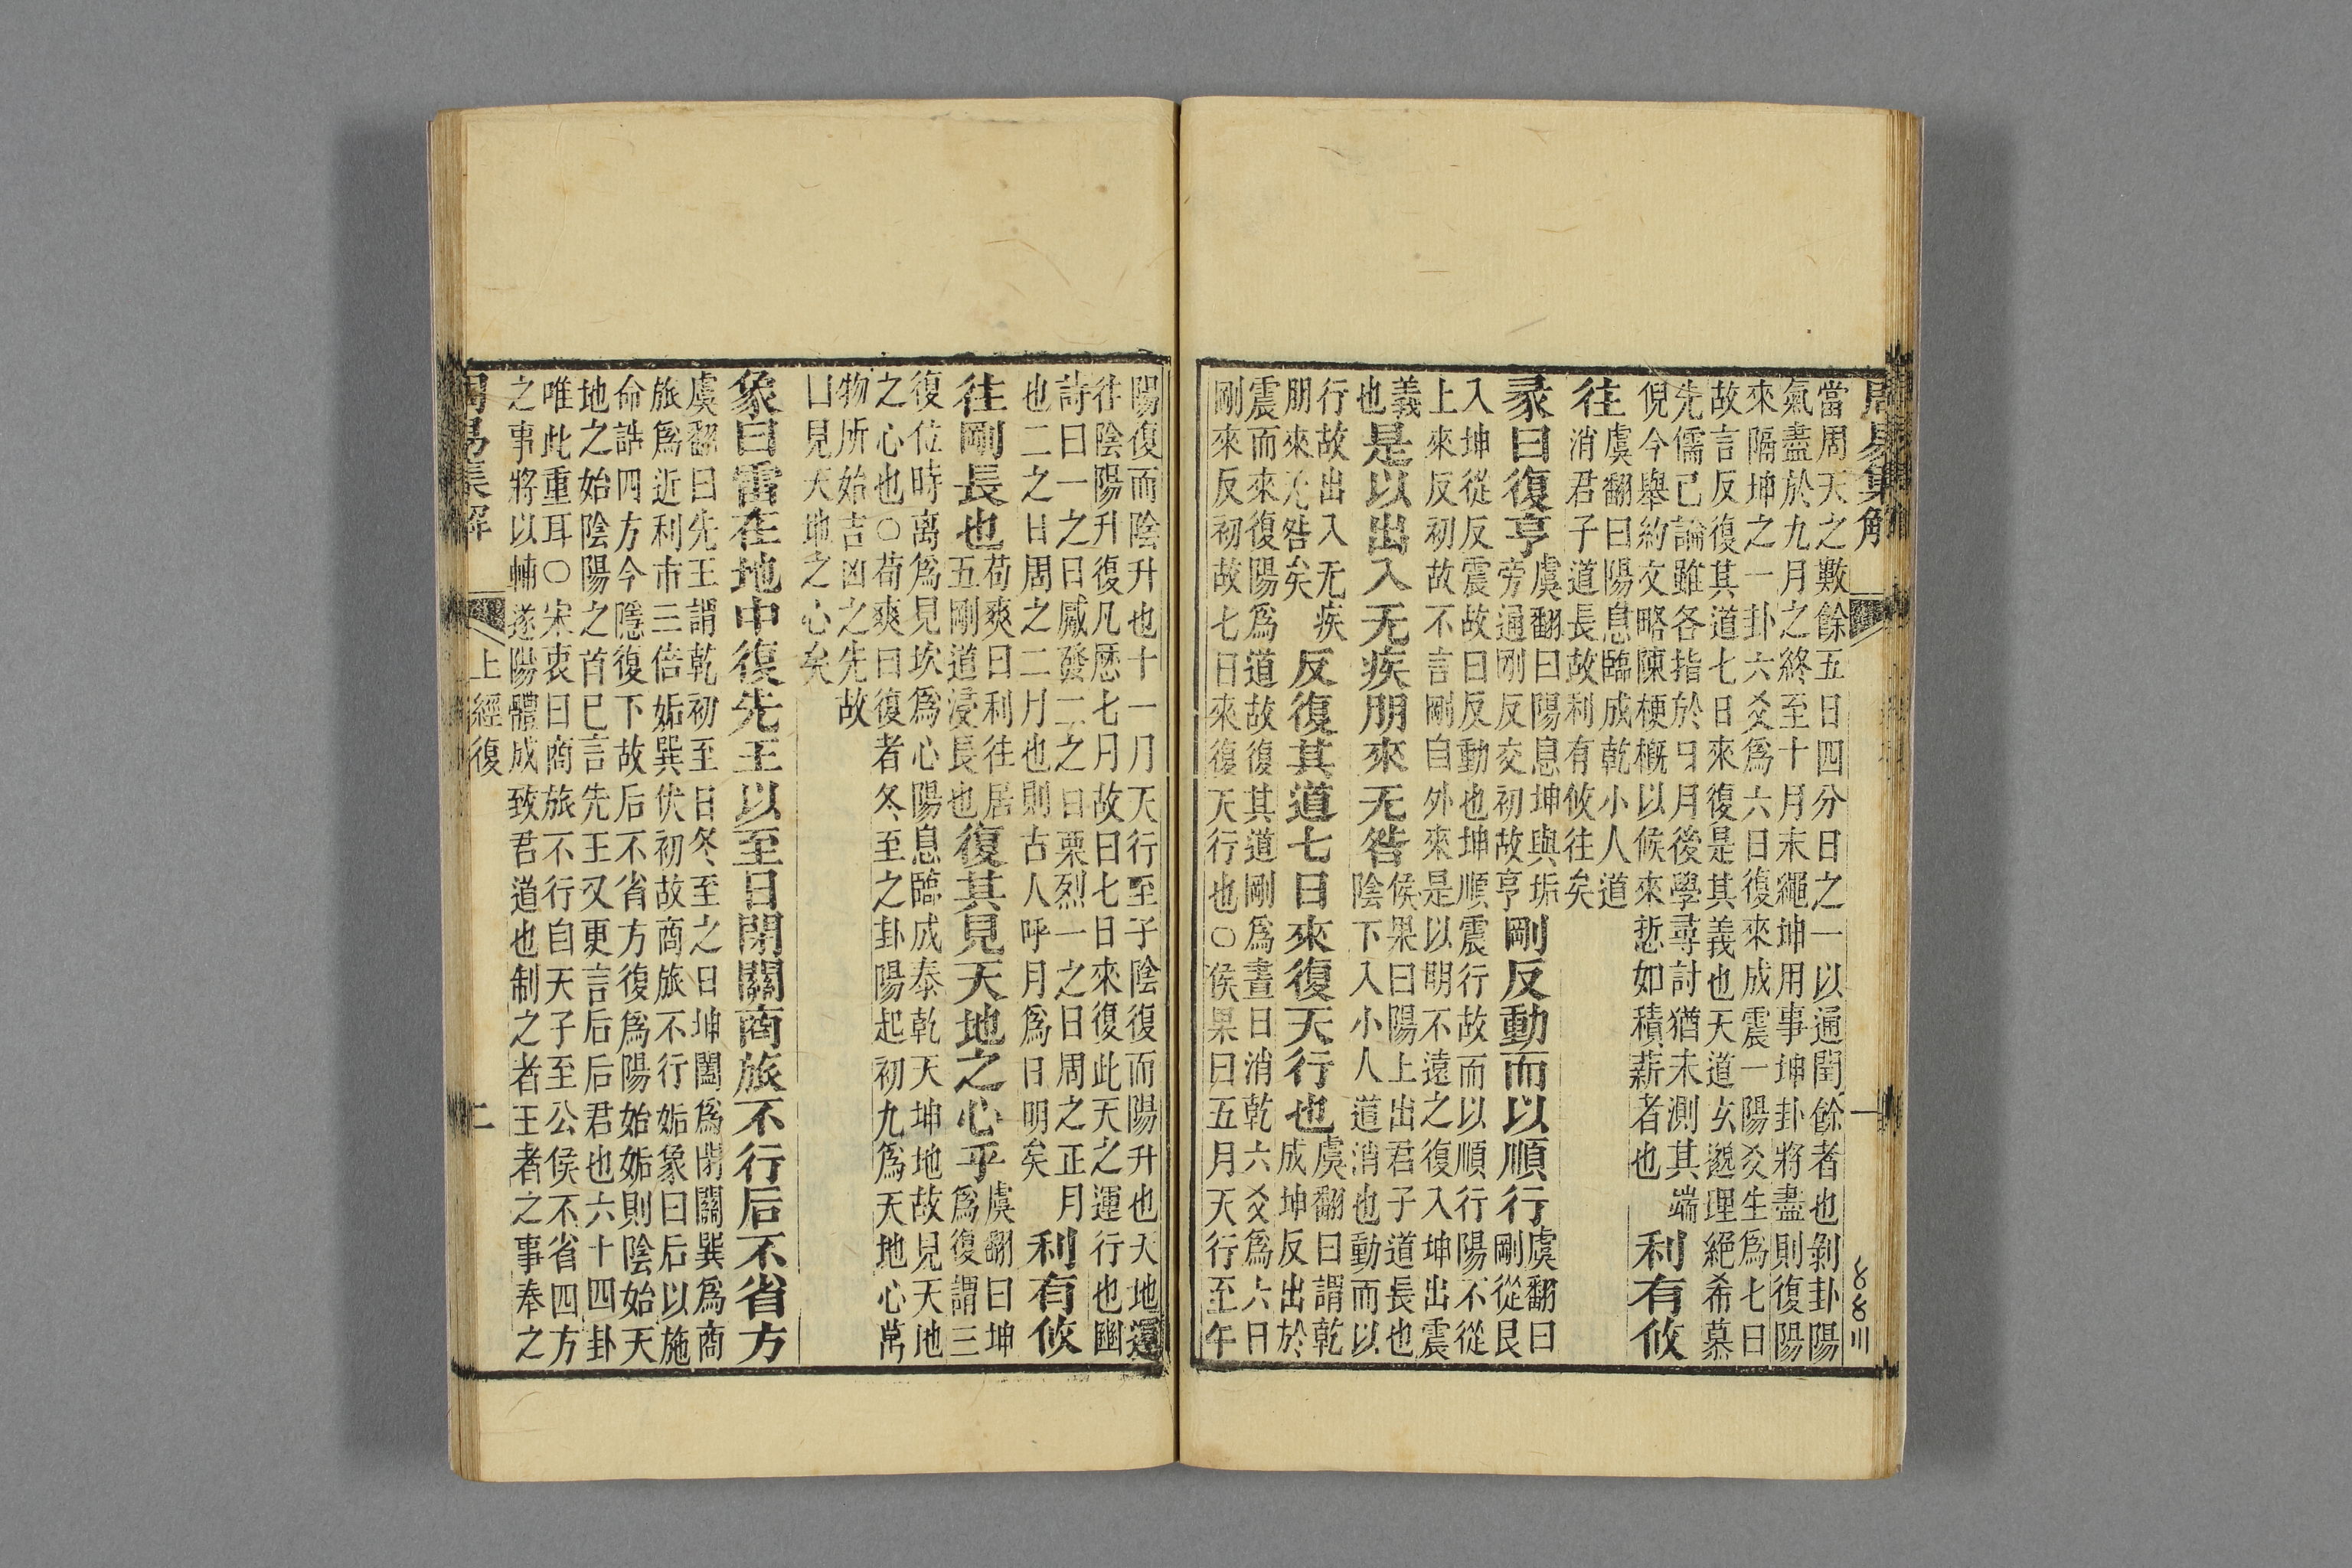 周易集解
一
當周天之數餘五日四分日之一以通閏餘者也剝卦陽
氣盡於九月之終至十月末純坤用事坤卦將盡則復陽
來隔坤之一卦六爻爲六日復來成震一陽爻生爲七日
故言反復其道七日來復是其義也天道玄邈理絕希慕
先儒已論雖各指於日月後學尋討猶未測其端
倪今舉約文略陳梗槪以候來悊如積薪者也
利有攸
往
虞翻曰陽息臨成乾小人道
消君子道長故利有攸往矣
彖曰復亨
虞翻曰陽息坤與垢
旁通剛反交初故亨
剛反動而以順行
虞翻曰
剛從艮
入坤從反震故曰反動也坤順震行故而以順行陽不從
上來反初故不言剛自外來是以明不遠之復入坤出震
義
也
是以出入无疾朋來无咎
侯果曰陽上出君子道長也
陰下入小人道消也動而以
行故出入无疾
朋來无咎矣
反復其道七日來復天行也
虞翻曰謂乾
成坤反出於
震而來復陽爲道故復其道剛爲晝日消乾六爻爲六日
剛來反初故七日來復天行也〇侯果曰五月天行至午
陽復而陰升也十一月天行至子陰復而陽升也天地運
往陰陽升復凡歷七月故曰七日來復此天之運行也豳
詩曰一之日觱發二之日栗烈一之日周之正月
也二之日周之二月也則古人呼月爲日明矣
利有攸
往剛長也
荀爽曰利往居
五剛道浸長也
復其見天地之心乎
虞翻曰坤
爲復謂三
復位時离爲見坎爲心陽息臨成泰乾天坤地故見天地
之心也〇荀爽曰復者冬至之卦陽起初九爲天地心萬
物所始吉凶之先故
曰見天地之心矣
象曰雷在地中復先王以至日閉關商旅不行后不省方
虞翻曰先王謂乾初至日冬至之日坤闔爲閉關巽爲商
旅爲近利市三倍姤巽伏初故商旅不行姤象曰后以施
命誥四方今隱復下故后不省方復爲陽始姤則陰始天
地之始陰陽之首已言先王又更言后后君也六十四卦
唯此重耳〇宋衷曰商旅不行自天子至公侯不省四方
之事將以輔遂陽體成致君道也制之者王者之事奉之
周易集解
上經復
二